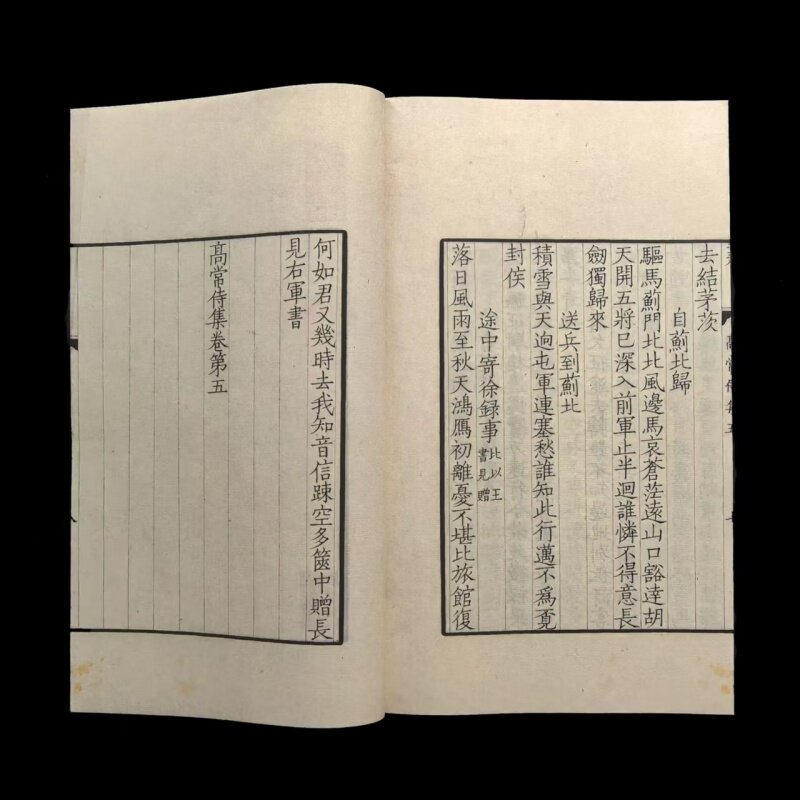 去結茅茨
自薊北歸
驅馬薊門北北風邊馬哀蒼茫遠山口豁達胡
天開五將已深入前軍止半迴誰憐不得意長
劒獨歸來
送兵到薊北
積雪與天迥屯軍連塞愁誰知此行邁不爲覔
封侯
途中寄徐錄事比以王書見贈
落日風雨至秋天鴻鴈初離憂不堪比旅館復
何如君又幾時去我知音信踈空多篋中贈長
見右軍書
高常侍集卷第五